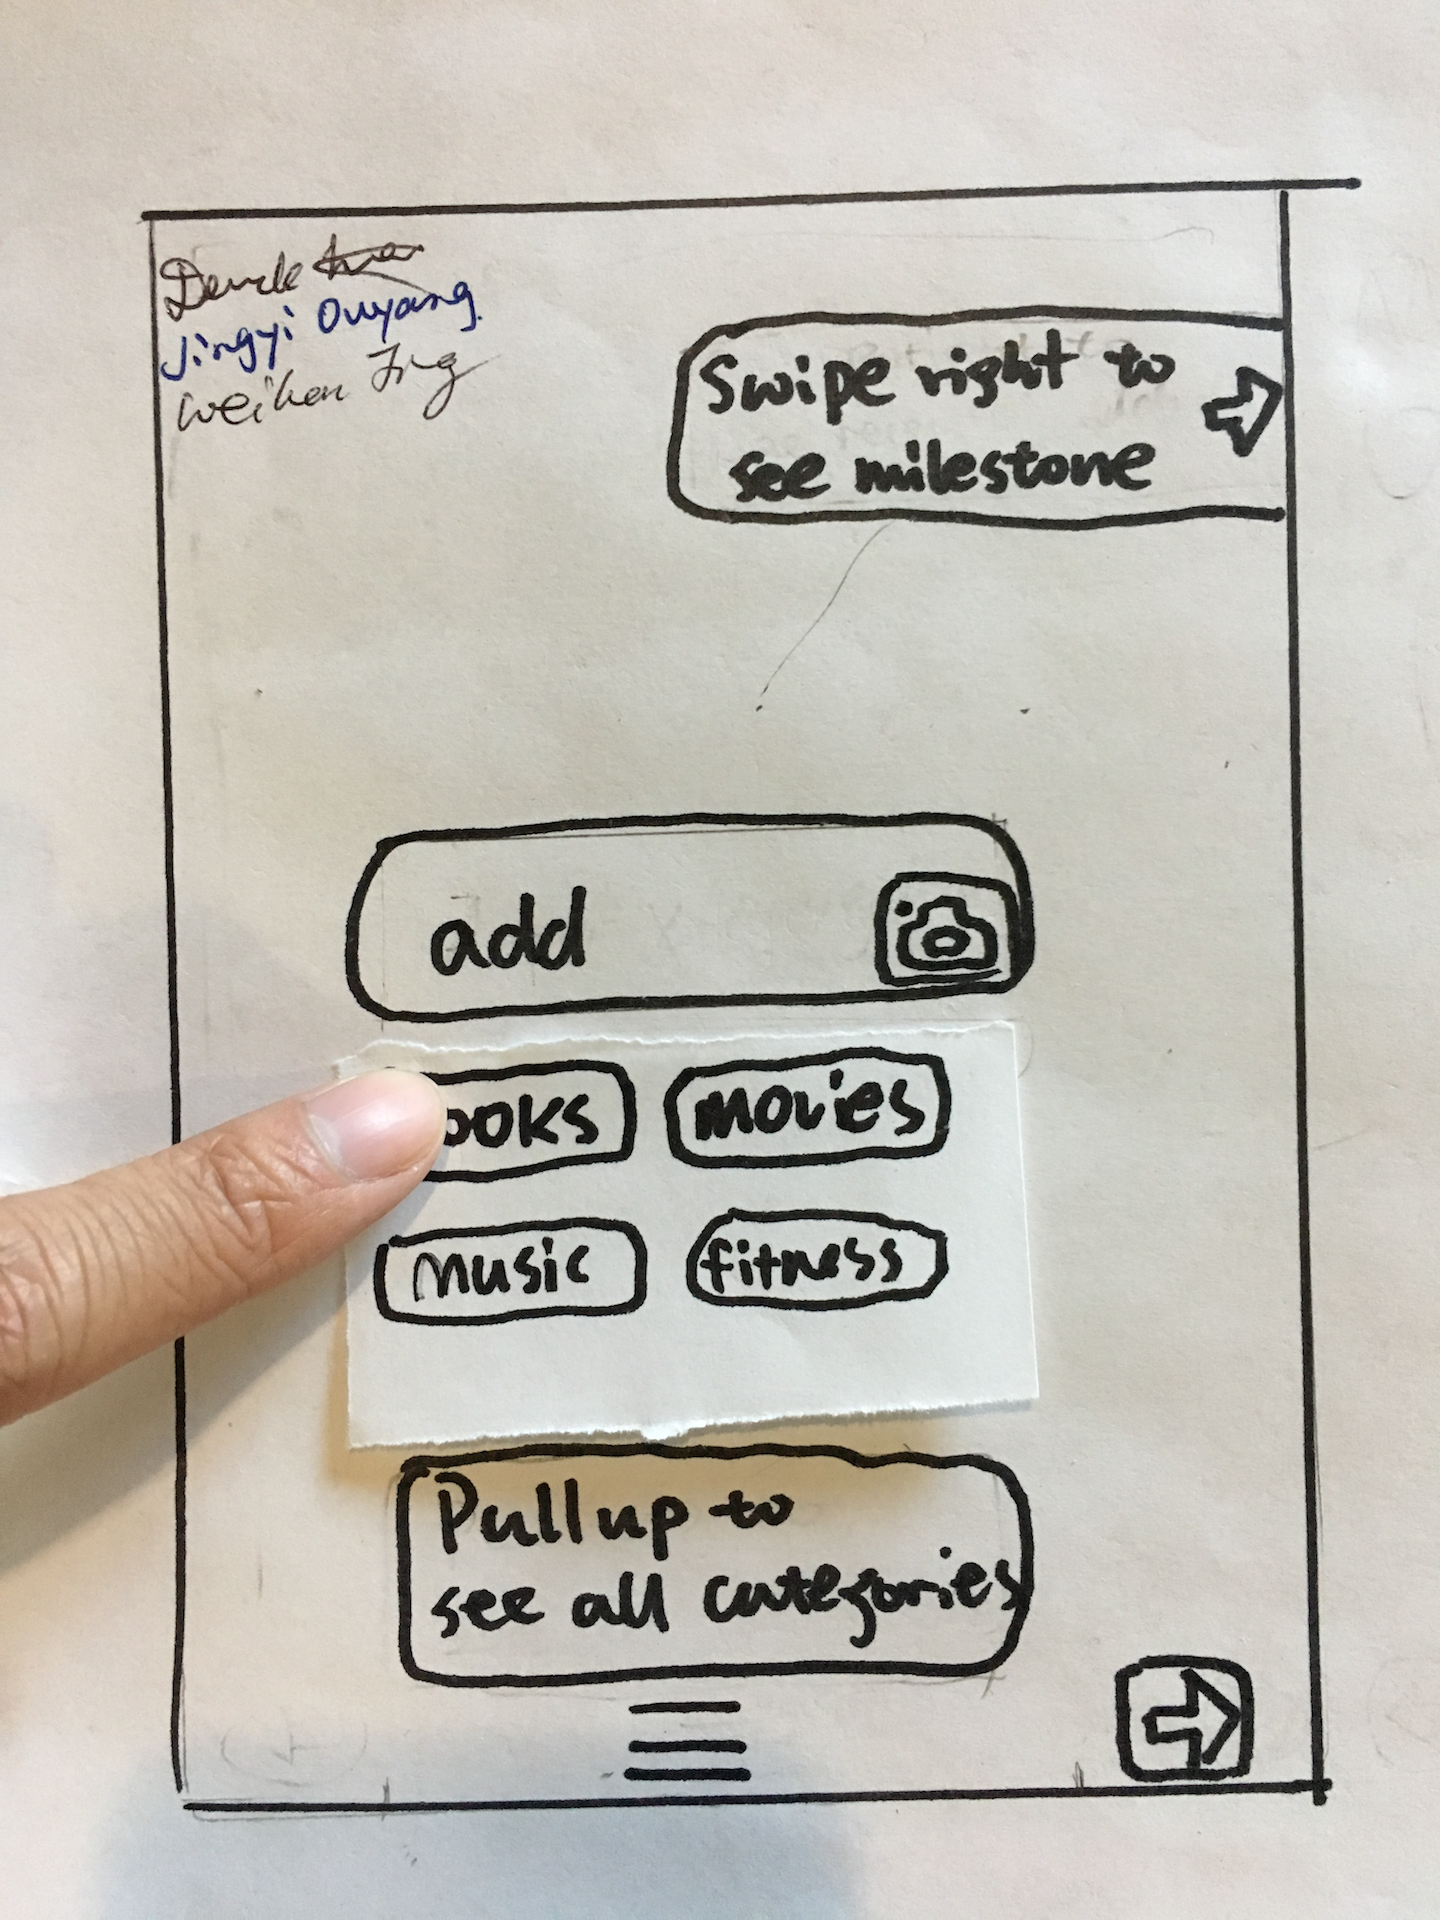 Jingyi Ouyang
Swipe right to
see milestone
add
ooks
movies
music
fitness
Pull up to
see all categories